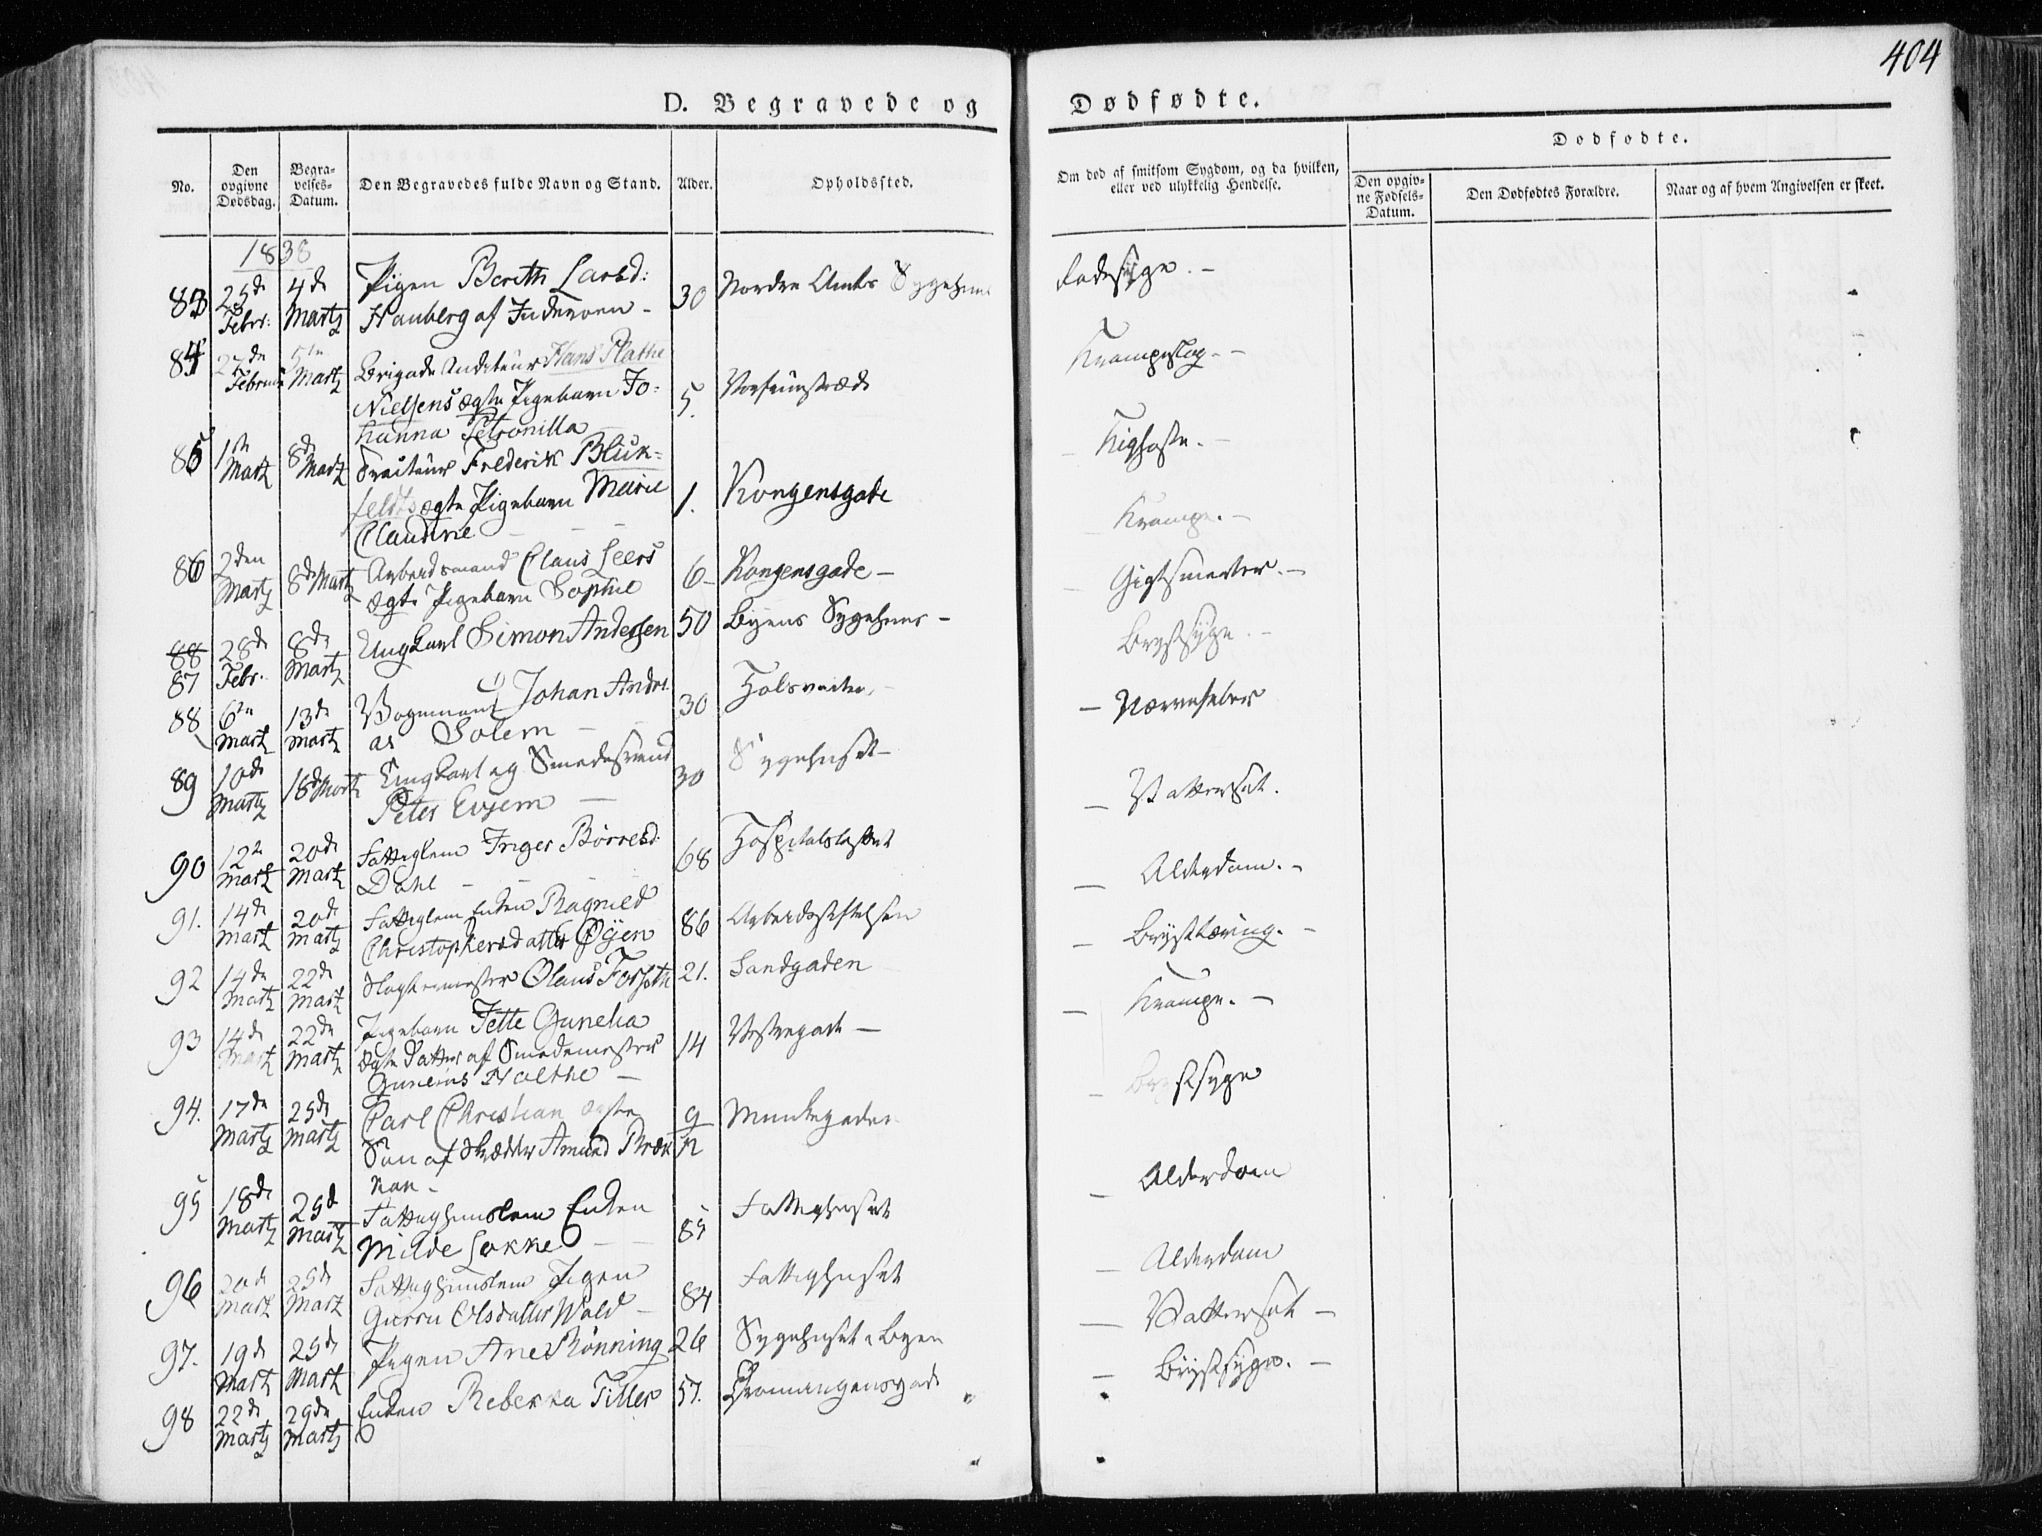 404
D. Begravede og Dødfødte.
No.
Den opgivne Dødsdag.
Begravelses-Datum.
Den Begravedes fulde Navn og Stand.
Alder.
Opholdssted.
Om død af smitsom Sygdom, og da hvilken, eller ved ulykkelig Hendelse.
Dødfødte.
Den opgivne Fødsels-Datum.
Den Dødfødtes Forældre.
Naar og af hvem Angivelsen er skeet.
1838
83 25de Febr: 4de Martz Pigen Bereth Larsd: 30 Nordre Amts Sygehuus Radesyge. -
Hauberg af Inderøen -
84 27de Februar 5te Martz Brigade Auditeur Hans Plathe Krampeslag. -
Nielsens ægte Pigebarn Jo= 5.
hanna Petronilla
85 1ste Martz 8de Martz Traiteur Frederik Blik= - Kighoste. -
feldts ægte Pigebarn Marie 1. Kongensgade
Claudine - Krampe. -
86 2den Martz 8de Martz Arbeidsmand Claus Leers 6 - Kongensgade -
ægte Pigebarn Sophie - Gigtsmerter. -
88
87 28de Febr. 8de Martz Ungkarl Simon Andersen 50 Byens Sygehuus - Brystsyge. -
88 6te Martz 13de Martz Vognmand Johan Andre 30 - Nervefeber
as Solem -
89 10de Martz 18de Martz Ungkarl og Smedesvend 30 Sygehuset - - Vattersot.
Peter Evjem -
90 12te Martz 20de Martz Fattiglem Inger Börresd: 68 Hospitalsløkket - Alderdom. -
Dahl - -
91. 14de Martz 20de Martz Fattiglem Enken Ragnild 86 Arbeidsstiftelsen - Brysttæring. -
Christophersdatter Øyen
92 14de Martz 22de Martz Olaus Forseth 21. Sandgaden - Krampe. -
93 14de Martz 22de Martz Pigebarn Jette Gunelia 14 - Brystsyge
ægte Datter af Smedemester
Gunerius Holthe -
94. 17de Martz 25de Martz Carl Christian ægte 9/12 Munkegaden
Søn af Skrædder Amund Bræk
kan -
95 18de Martz 25de Martz Fattighuuslem Enken 85 Fattighuset - Alderdom
Milde Løkke - -
96 20de Martz 25de Martz Fattighuuslem Pigen 84 Fattighuset - Alderdom
Gurru Olsdatter Wold -
97. 19de Martz 25de Martz Pigen Ane Rønning 26 Sygehuset i Byen - Vattersot -
98 22de Martz 29de Martz Enken Rebekka Tiller 57. - Brystsyge. -